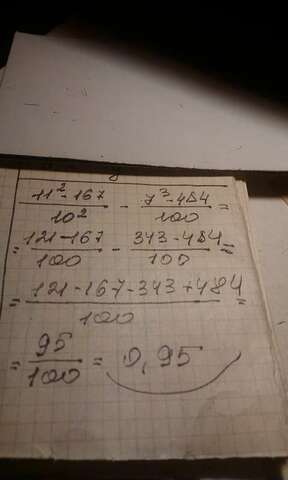 (11² - 167)/10² - (7³ - 484)/100 =
= (121 - 167)/100 - (343 - 484)/100 =
= (121 - 167 - 343 + 484)/100 =
= 95/100 = 0,95